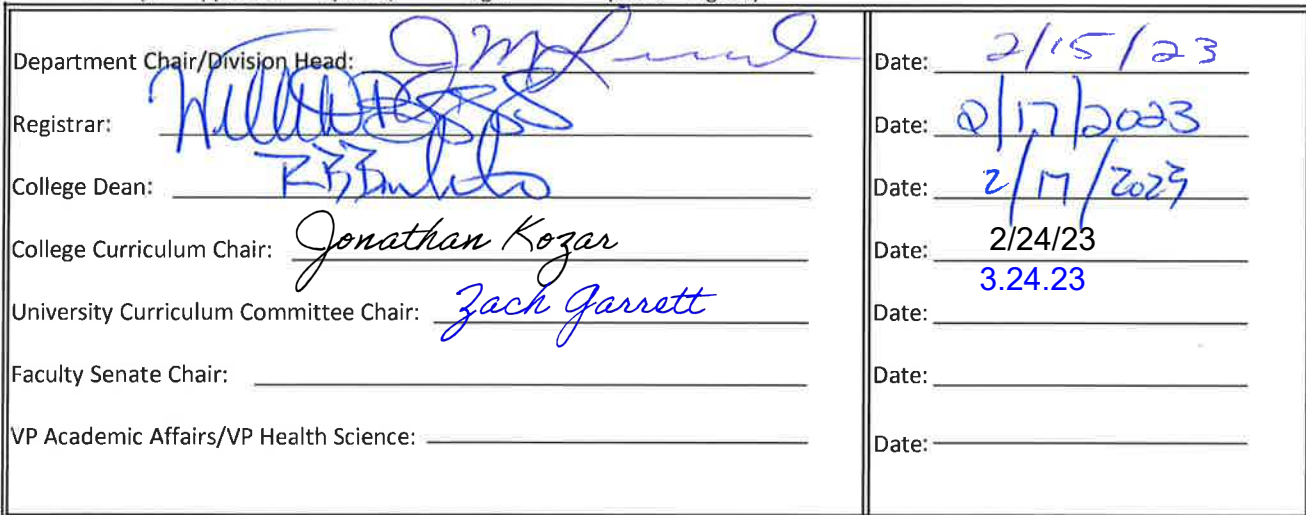 Department Chair/Division Head: Date: 2/15/23
Registrar: Date: 2/17/2023
College Dean: Date: 2/17/2023
College Curriculum Chair: Jonathan Kozar Date: 2/24/23
3.24.23
University Curriculum Committee Chair: Zach Garrett Date:
Faculty Senate Chair: Date:
VP Academic Affairs/VP Health Science: Date: